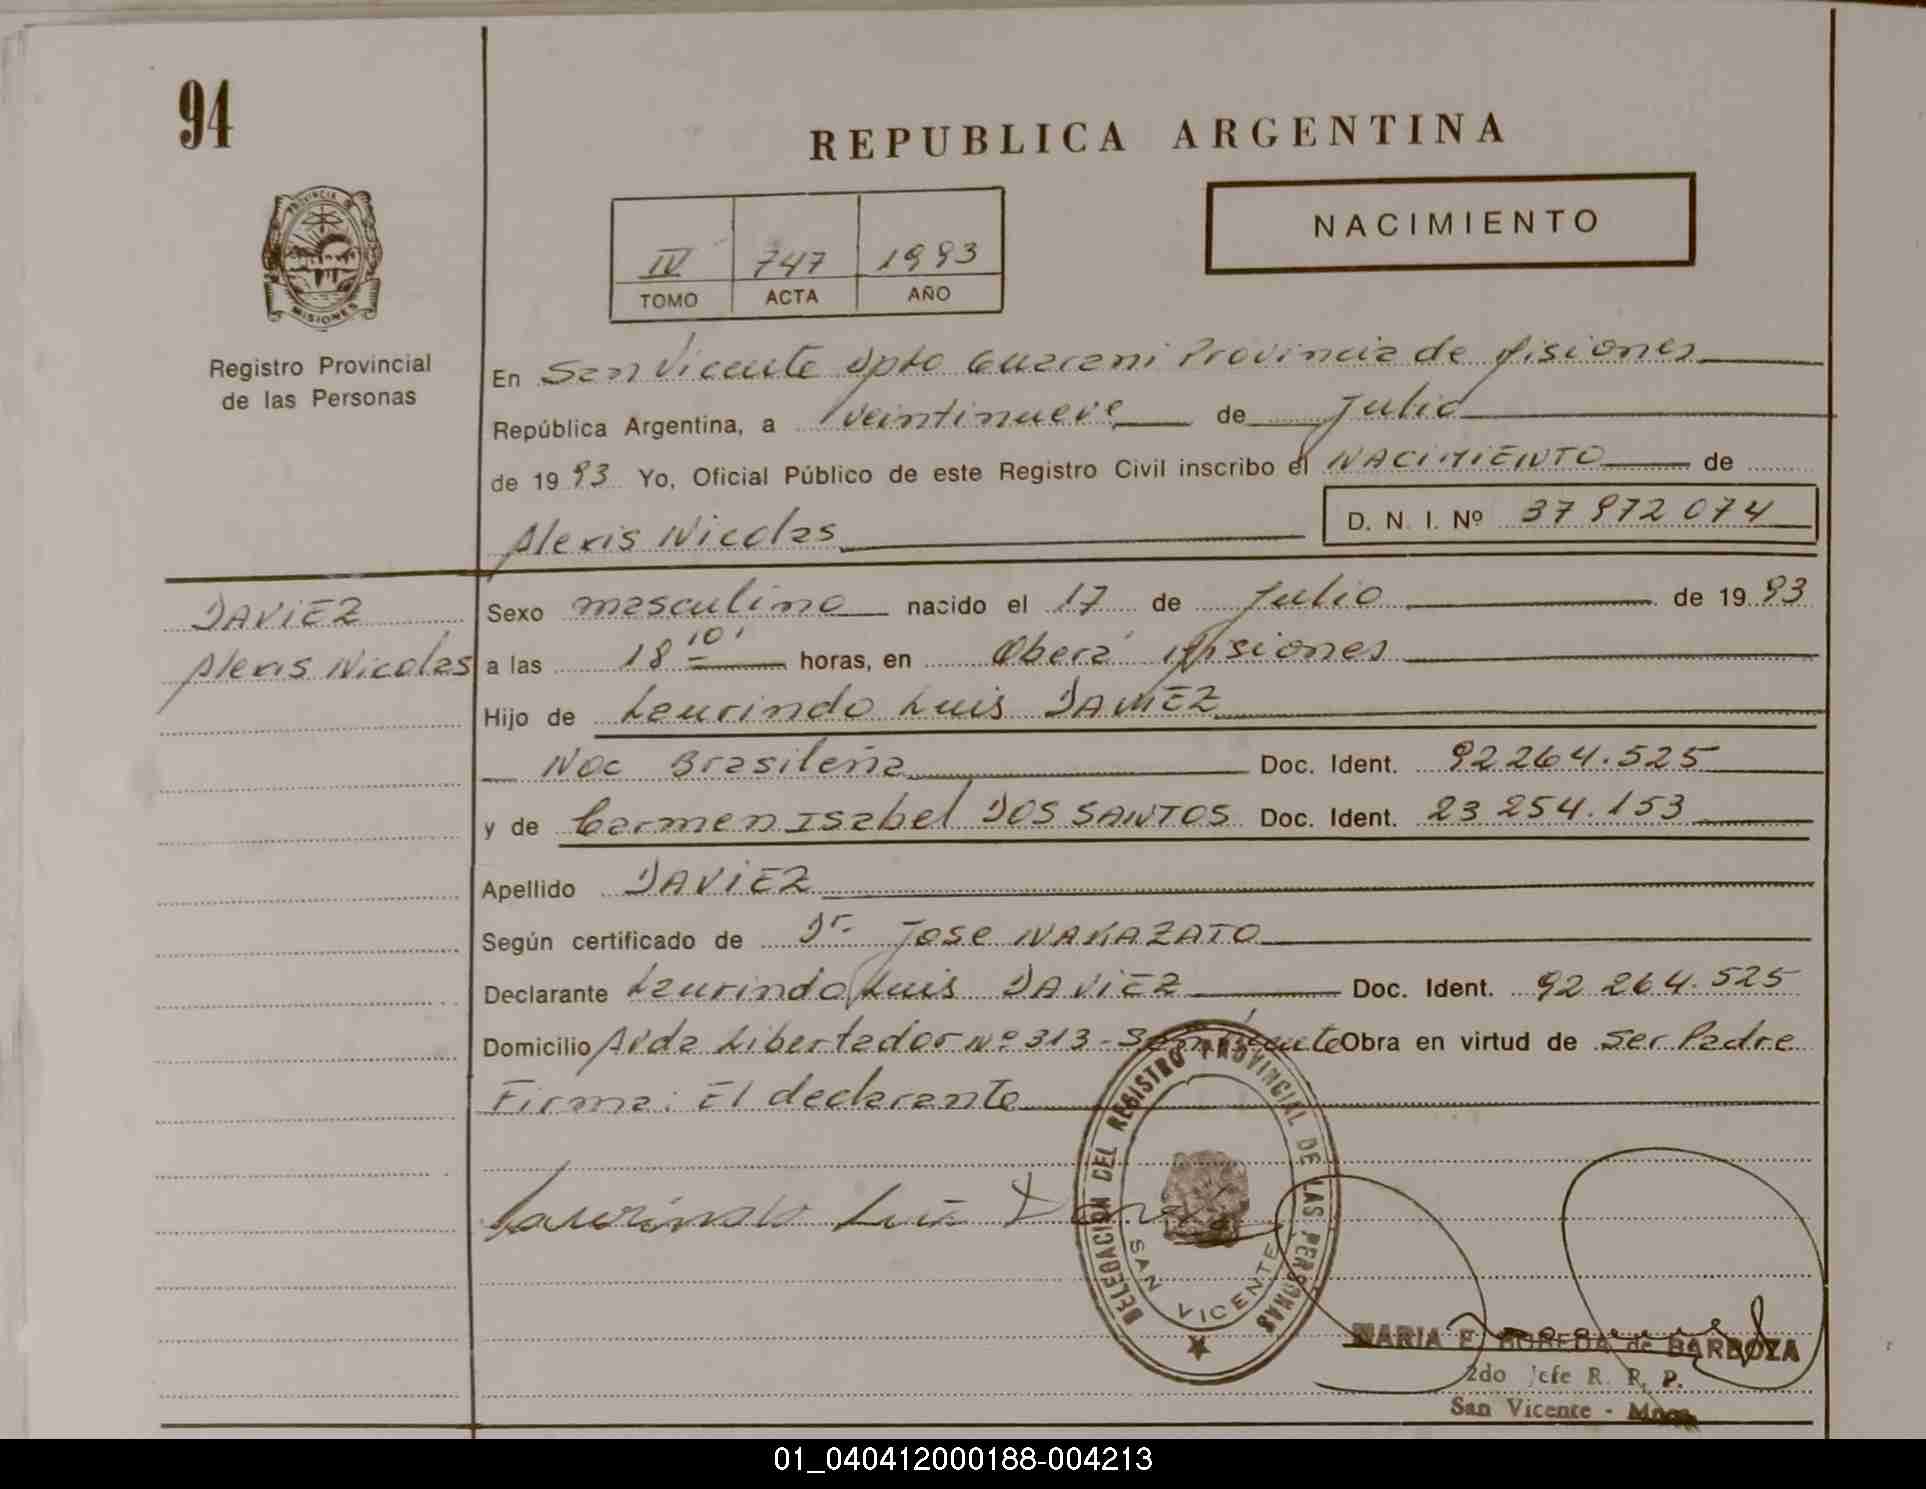 94
REPUBLICA ARGENTINA
NACIMIENTO
IV 747 1993
TOMO ACTA AÑO
PROVINCIA DE
MISIONES
Registro Provincial
de las Personas
En San Vicente Dpto Guarani Provincia de Misiones
República Argentina, a Veintinueve de Julio
de 1993 Yo, Oficial Público de este Registro Civil inscribo el NACIMIENTO de
Alexis Nicolas
D. N. I. Nº 37 972 074
DAVIEZ
Alexis Nicolas
Sexo masculino nacido el 17 de Julio de 1993
a las 18 10' horas, en Oberá Misiones
Hijo de Laurindo Luis DAVIEZ
Nac Brasileña Doc. Ident. 92 264.525
y de Carmen Isabel DOS SANTOS Doc. Ident. 23 254.153
Apellido DAVIEZ
Según certificado de Dr. Jose NAKAZATO
Declarante Laurindo Luis DAVIEZ Doc. Ident. 92 264.525
Domicilio Avda Libertador Nº 313 - San Vicente Obra en virtud de Ser Padre
Firma: El declarante
Laurindo Luiz
DELEGACION DEL REGISTRO PROVINCIAL DE LAS PERSONAS
SAN VICENTE
MARIA E. de BARBOZA
2do Jefe R. P. P.
San Vicente - Mnes
01_040412000188-004213